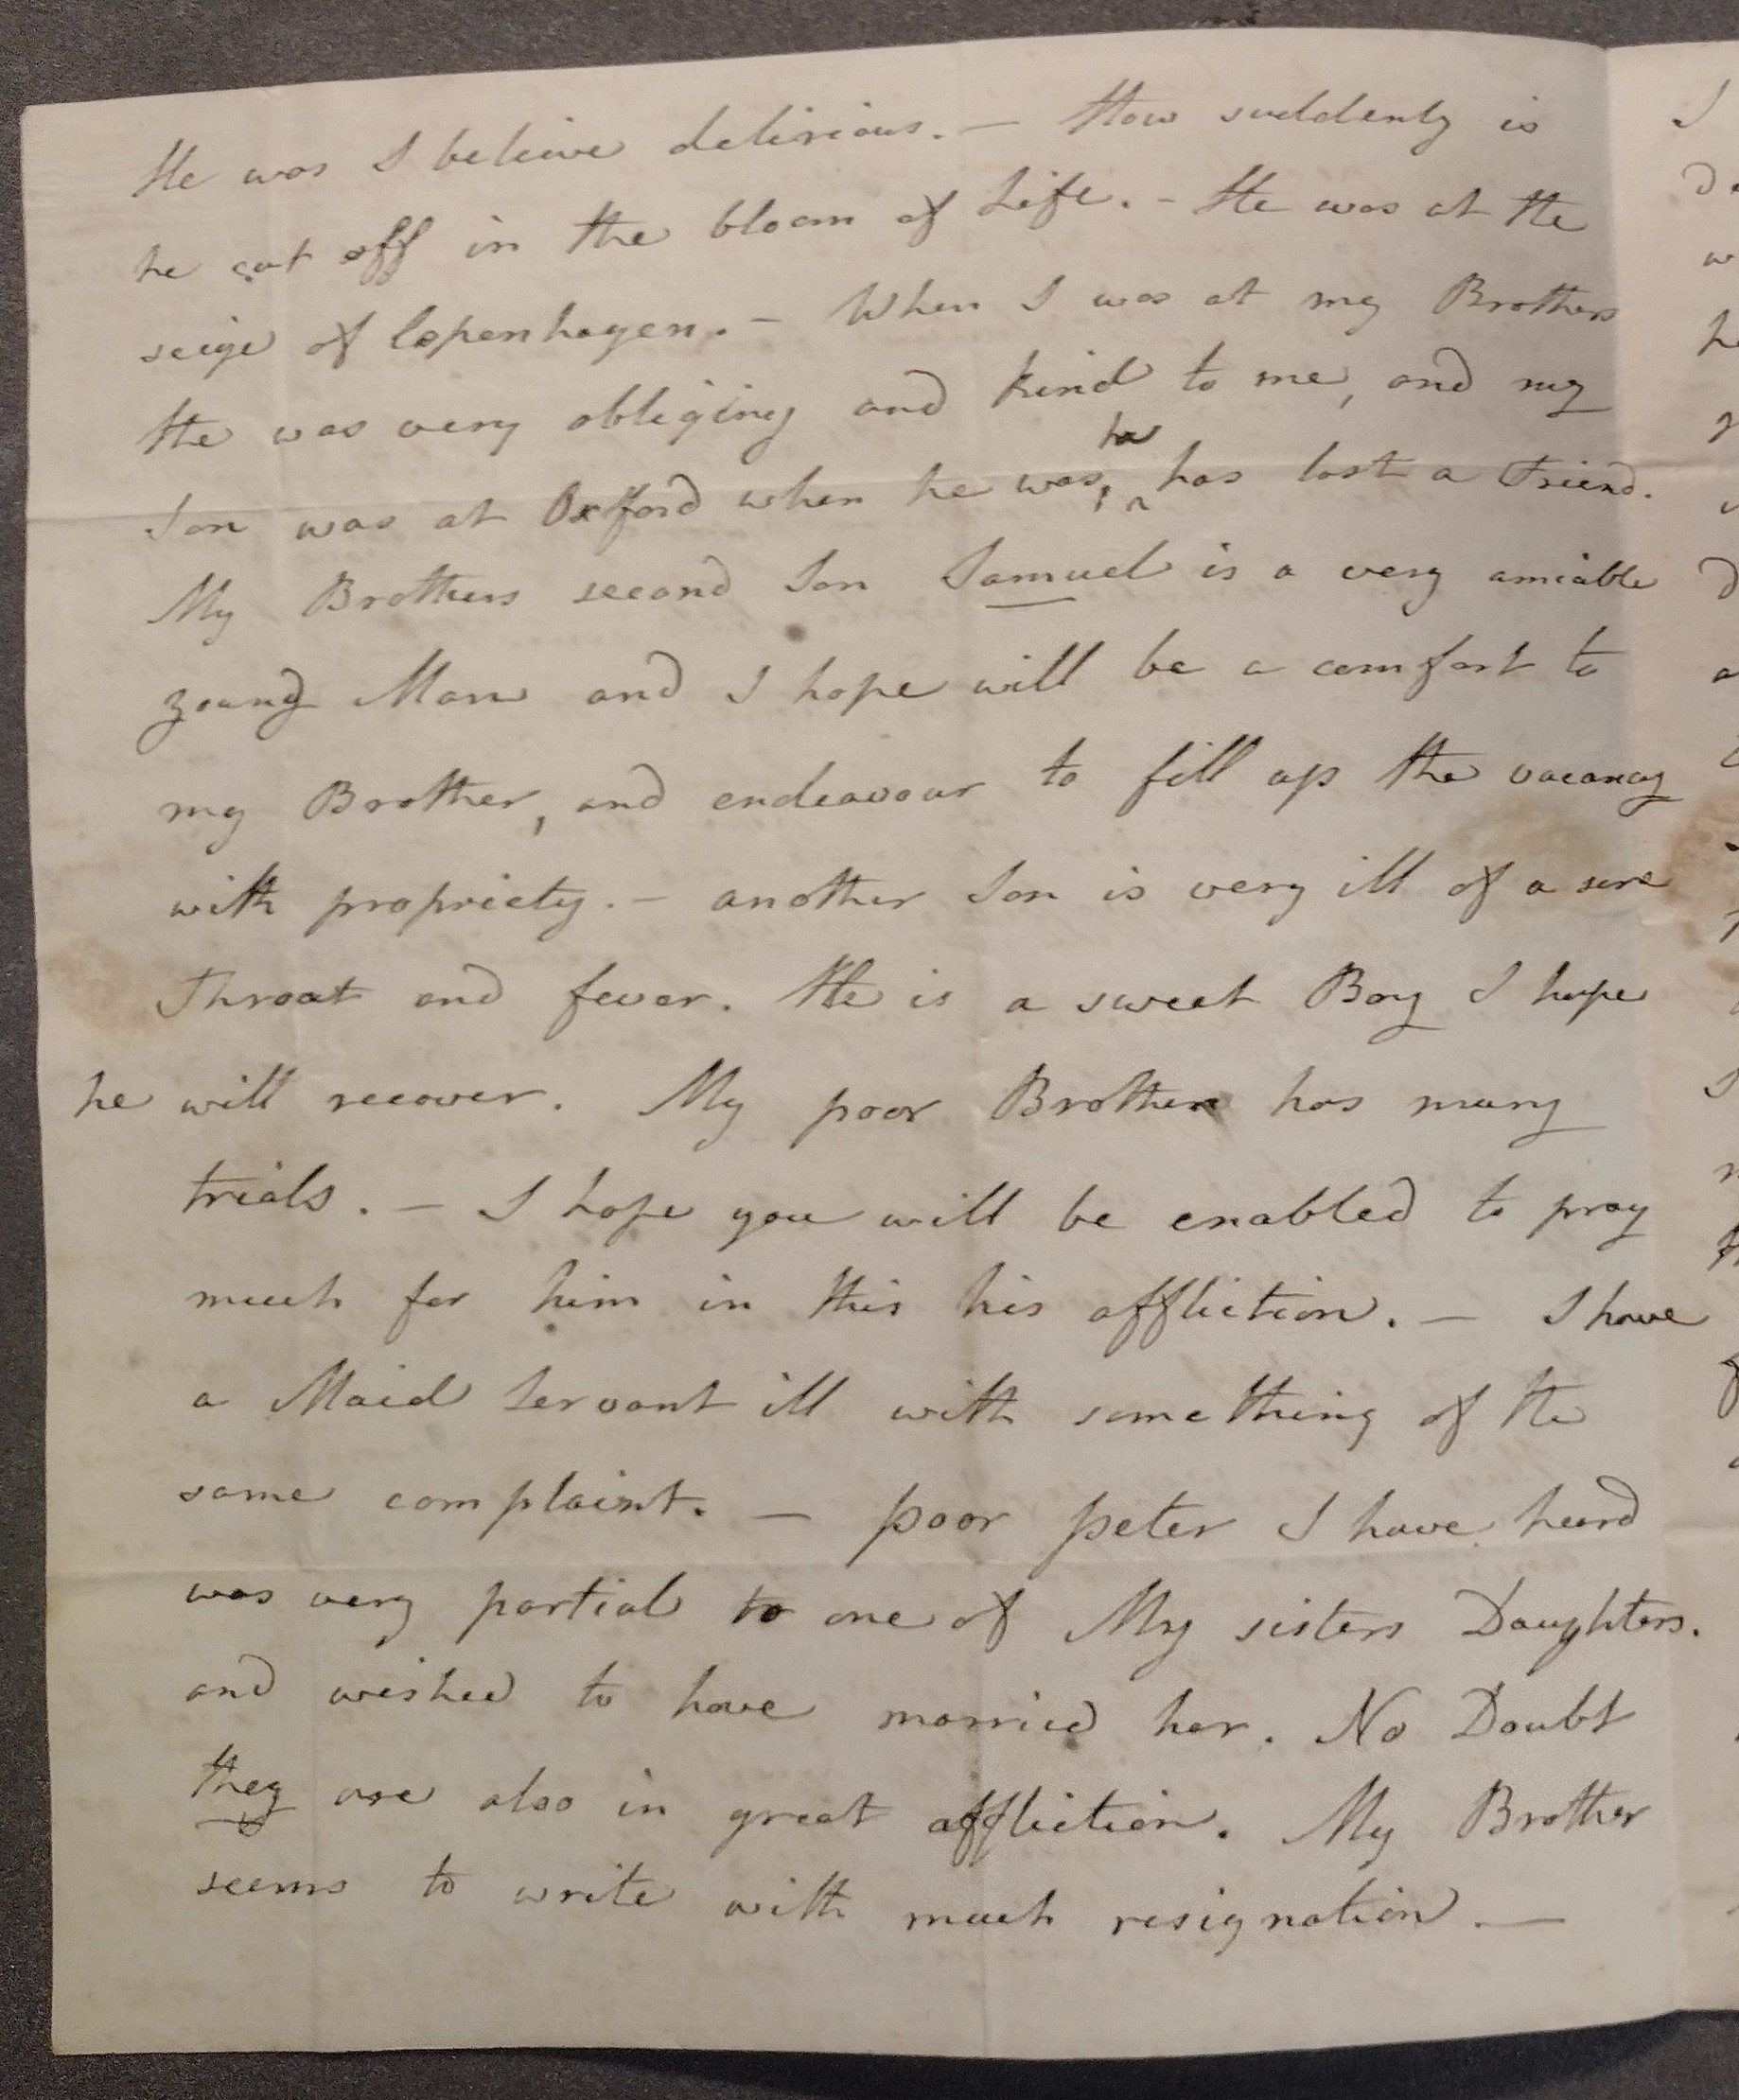 He was I believe delirious. — How suddenly is
he cut off in the bloom of Life. - He was at the
seige of Copenhagen. - When I was at my Brothers
He was very obliging and kind to me, and my
he
Son was at Oxford when he was, ^ has lost a Friend.
My Brothers second Son Samuel is a very amiable
young Man and I hope will be a comfort to
my Brother, and endeavour to fill up the vacancy
with propriety. - another Son is very ill of a sore
Throat and fever. He is a sweet Boy I hope
he will recover. My poor Brother has many
trials. — I hope you will be enabled to pray
much for him in this his affliction. — I have
a Maid Servant ill with something of the
same complaint. — poor peter I have heard
was very partial to one of My sisters Daughters.
and wished to have married her. No Doubt
they are also in great affliction. My Brother
seems to write with much resignation. —